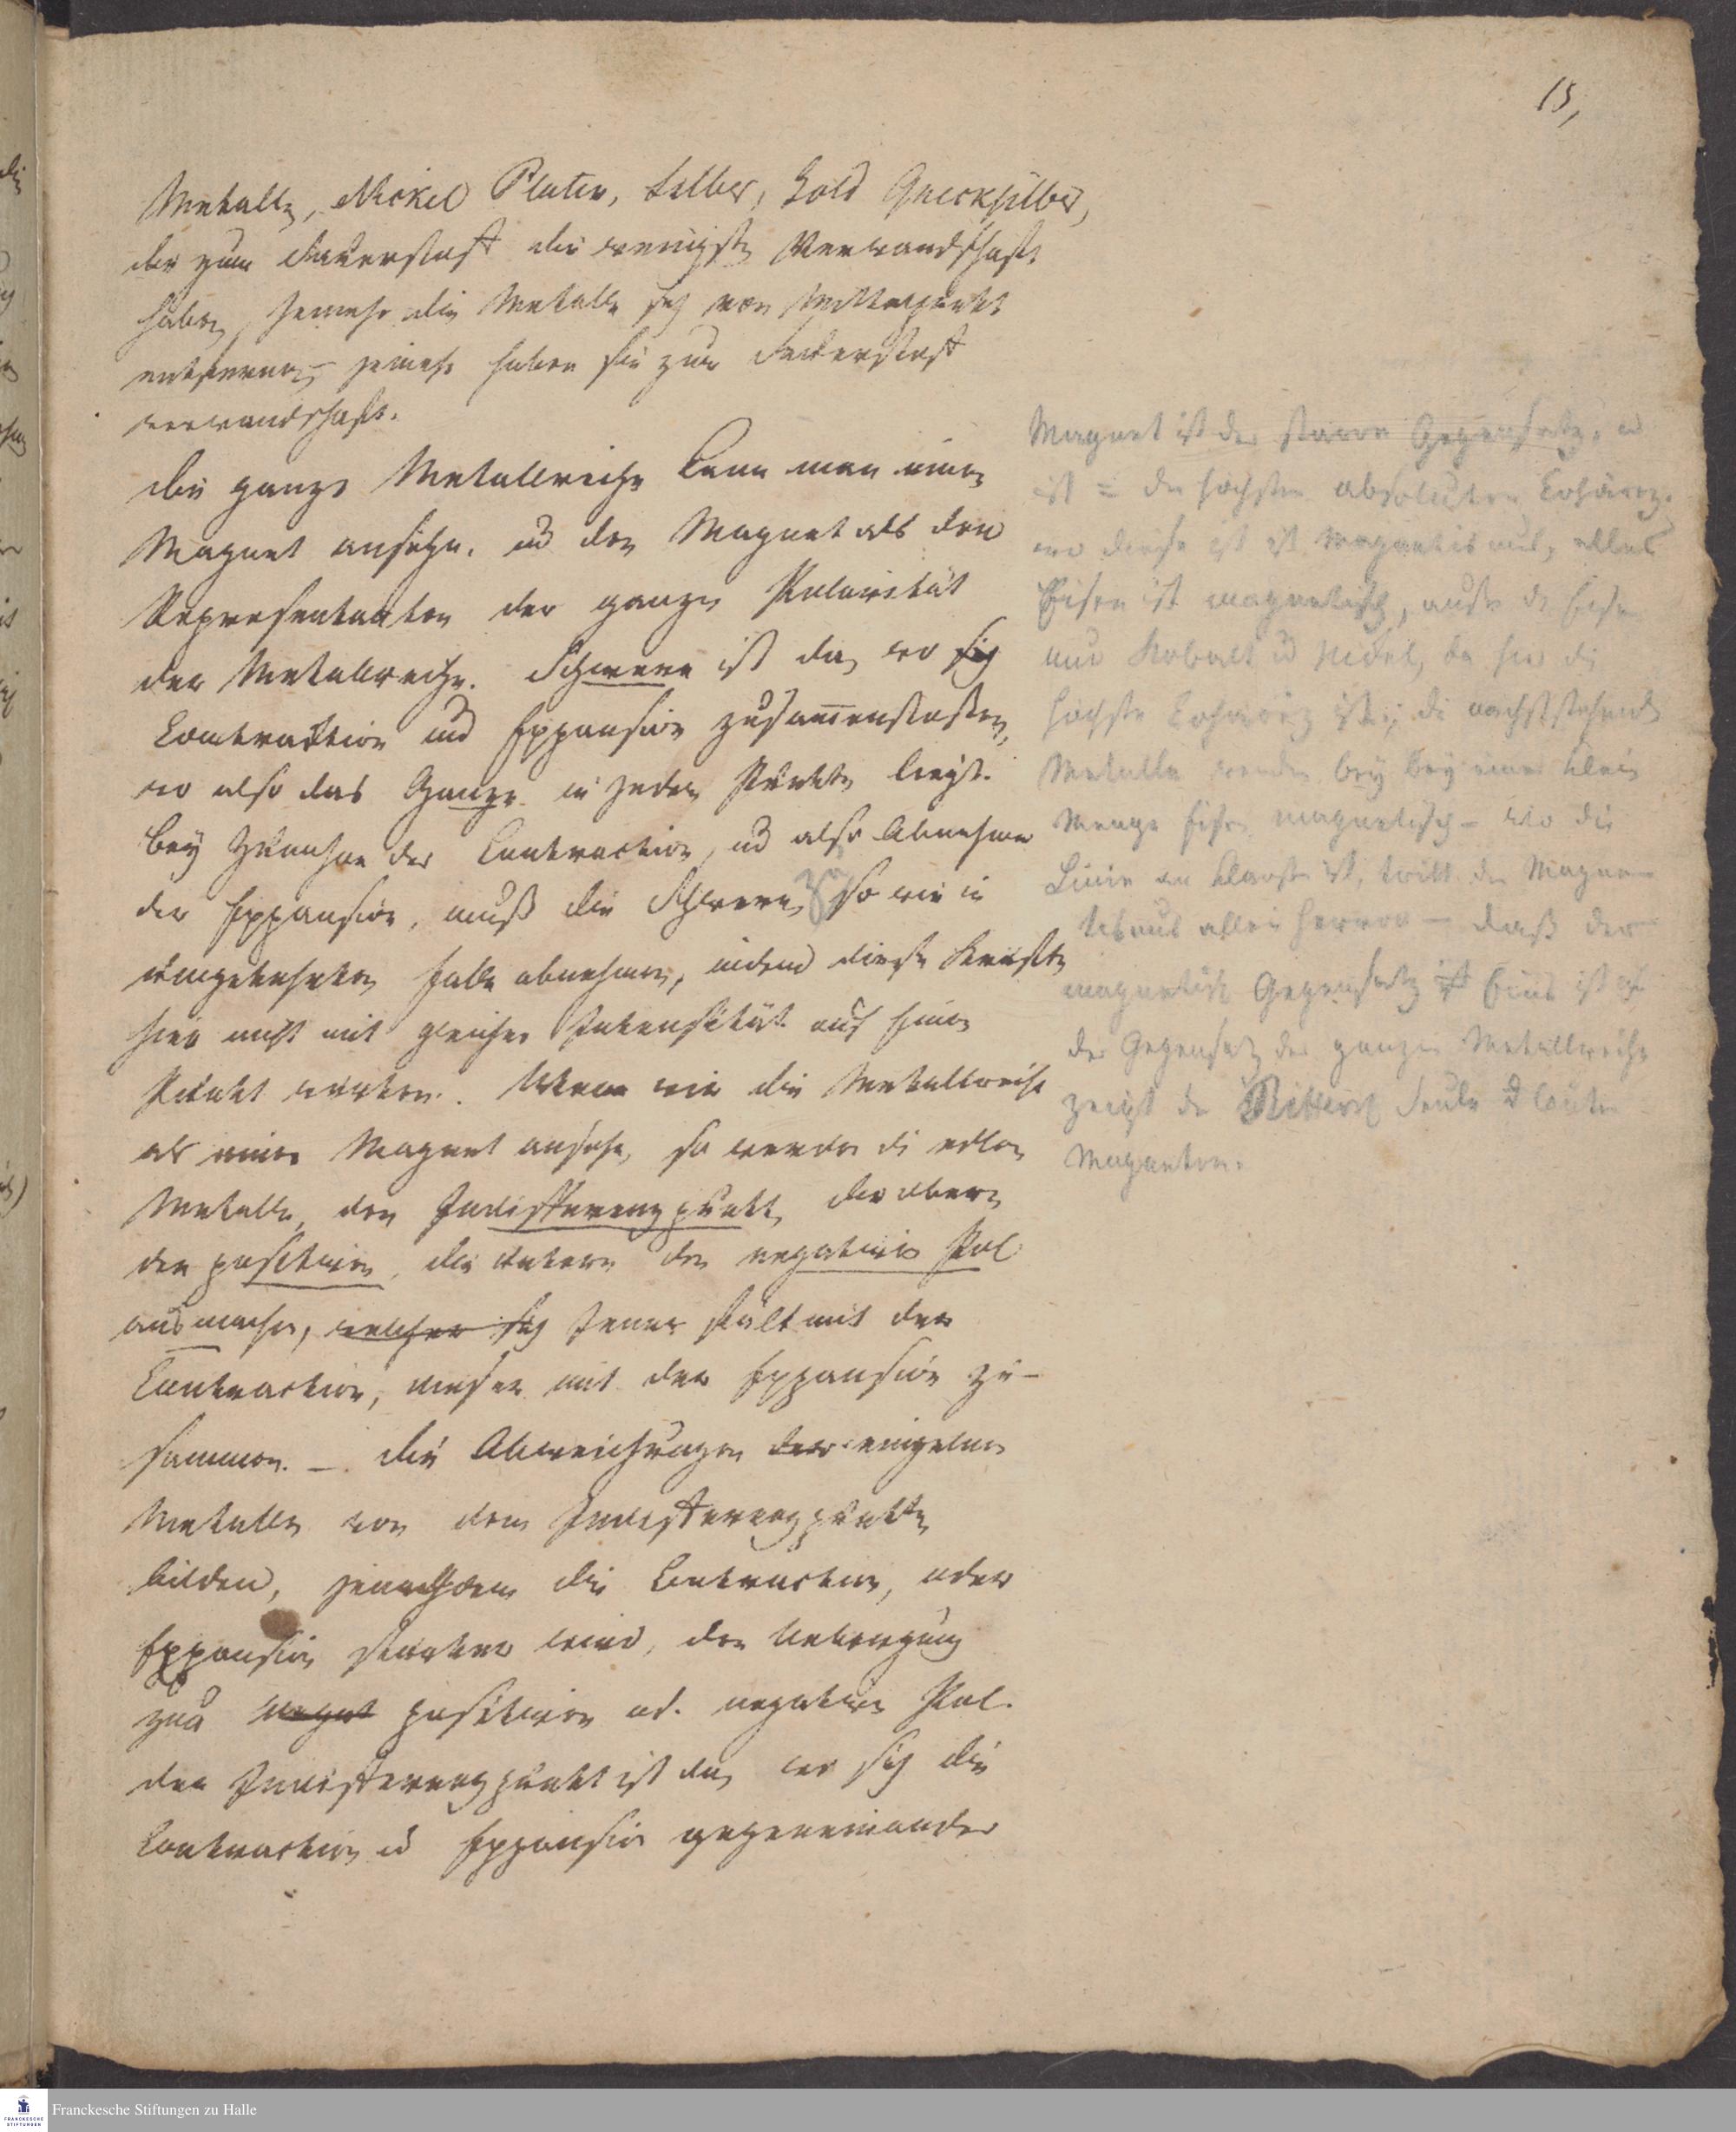 15,
Metalle, Nickel Platin, Silber, Gold Quecksilber,
die zum Sauerstoff die wenigste Verwandschaft
haben, jemehr die Metalle sich vom Mittelpunkt
entfernen, jemehr haben sie zum Sauerstoff
verwandschaft.
Die ganze Metallreihe kann man einen
Magnet ansehen. und den Magnet als den
Representanten der ganzen Polarität
der Metallreihe. Schwere ist da, wo sich
Contraction und Expansion zusammenstoßen,
wo also das Ganze in jedem Punkte liegt.
bey Zunahme der Contraction, und also Abnahme
der Expansion, muß die Schwere, so wie im
umgekehrten Falle abnehmen, indem diese Kräfte
hier nicht mit gleicher Intensität auf einen
Punkt wirken. Wenn wir die Metallreihe
als einen Magnet ansehe, so werden die edlen
Metalle, den Indifferenzpunkt, die obern
den positiven, die untern den negativen Pol
ausmachen, welcher sich Jener fält mit der
Contraction, dieser mit der Expansion zu-
sammen. – Die Abweichungen der einzelnen
Metalle von dem Indifferenzpunkte
bilden, jenachdem die Contraction, oder
Expansion stärker wird, den Uebergang
zum negat positiven od. negativen Pol.
der Indifferenzpunkt ist da, wo sich die
Contraction u Expansion gegeneinander
Magnet ist der starre Gegensatz, u
ist = der höchsten absoluten Cohärenz.
wo diese ist ist Magnetismus, alles
Eisen ist magnetisch, außer d. Eisen
nur Kobalt u Nickel, da hier die
höchste Cohärenz ist; die nächststehende
Metalle werden bey bey einer klein
Menge Eisen magnetisch – Wo die
Linie am starrste ist, tritt der Magne-
tismus allein hervor – daß der
magnetisch Gegensatz ist Eins ist mit
der Gegensatz der ganzen Metallreihe
zeigt die Rittersch Seule
Magneten.